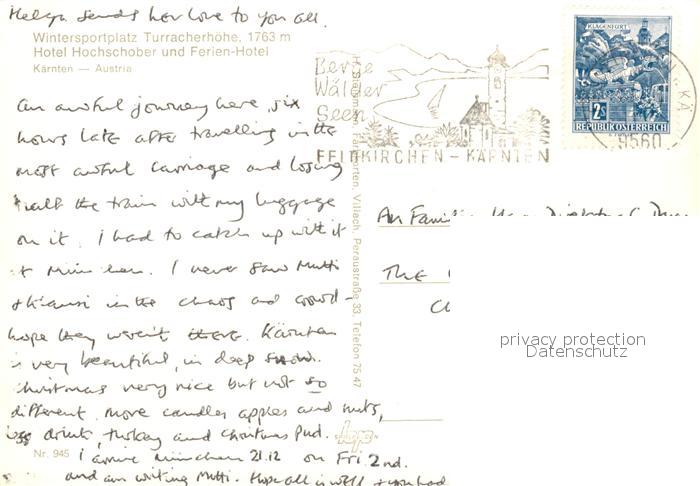 Helga sends her love to you all.
Wintersportplatz Turracherhöhe, 1763 m
Hotel Hochschober und Ferien-Hotel
Kärnten — Austria
An awful journey here, six
hours late after travelling in the
most awful carriage and losing
half the train with my luggage
on it. I had to catch up with it
at München. I never saw Mutti
+ Klausi in the chaos and crowd -
hope they weren't there. Kärnten
is very beautiful, in deep snow.
Christmas very nice but not so
different. More candles apples and nuts,
less drink, turkey and Christmas Pud.
Nr. 945
I arrive München 21.12 on Fri. 2nd.
and am writing Mutti. Hope all is well + you had
Berge
Wälder
Seen
FELDKIRCHEN - KÄRNTEN
KLAGENFURT
2S
REPUBLIK ÖSTERREICH
9560
Villach, Peraustraße 33, Telefon 75 47
An Familie
THE
privacy protection
Datenschutz